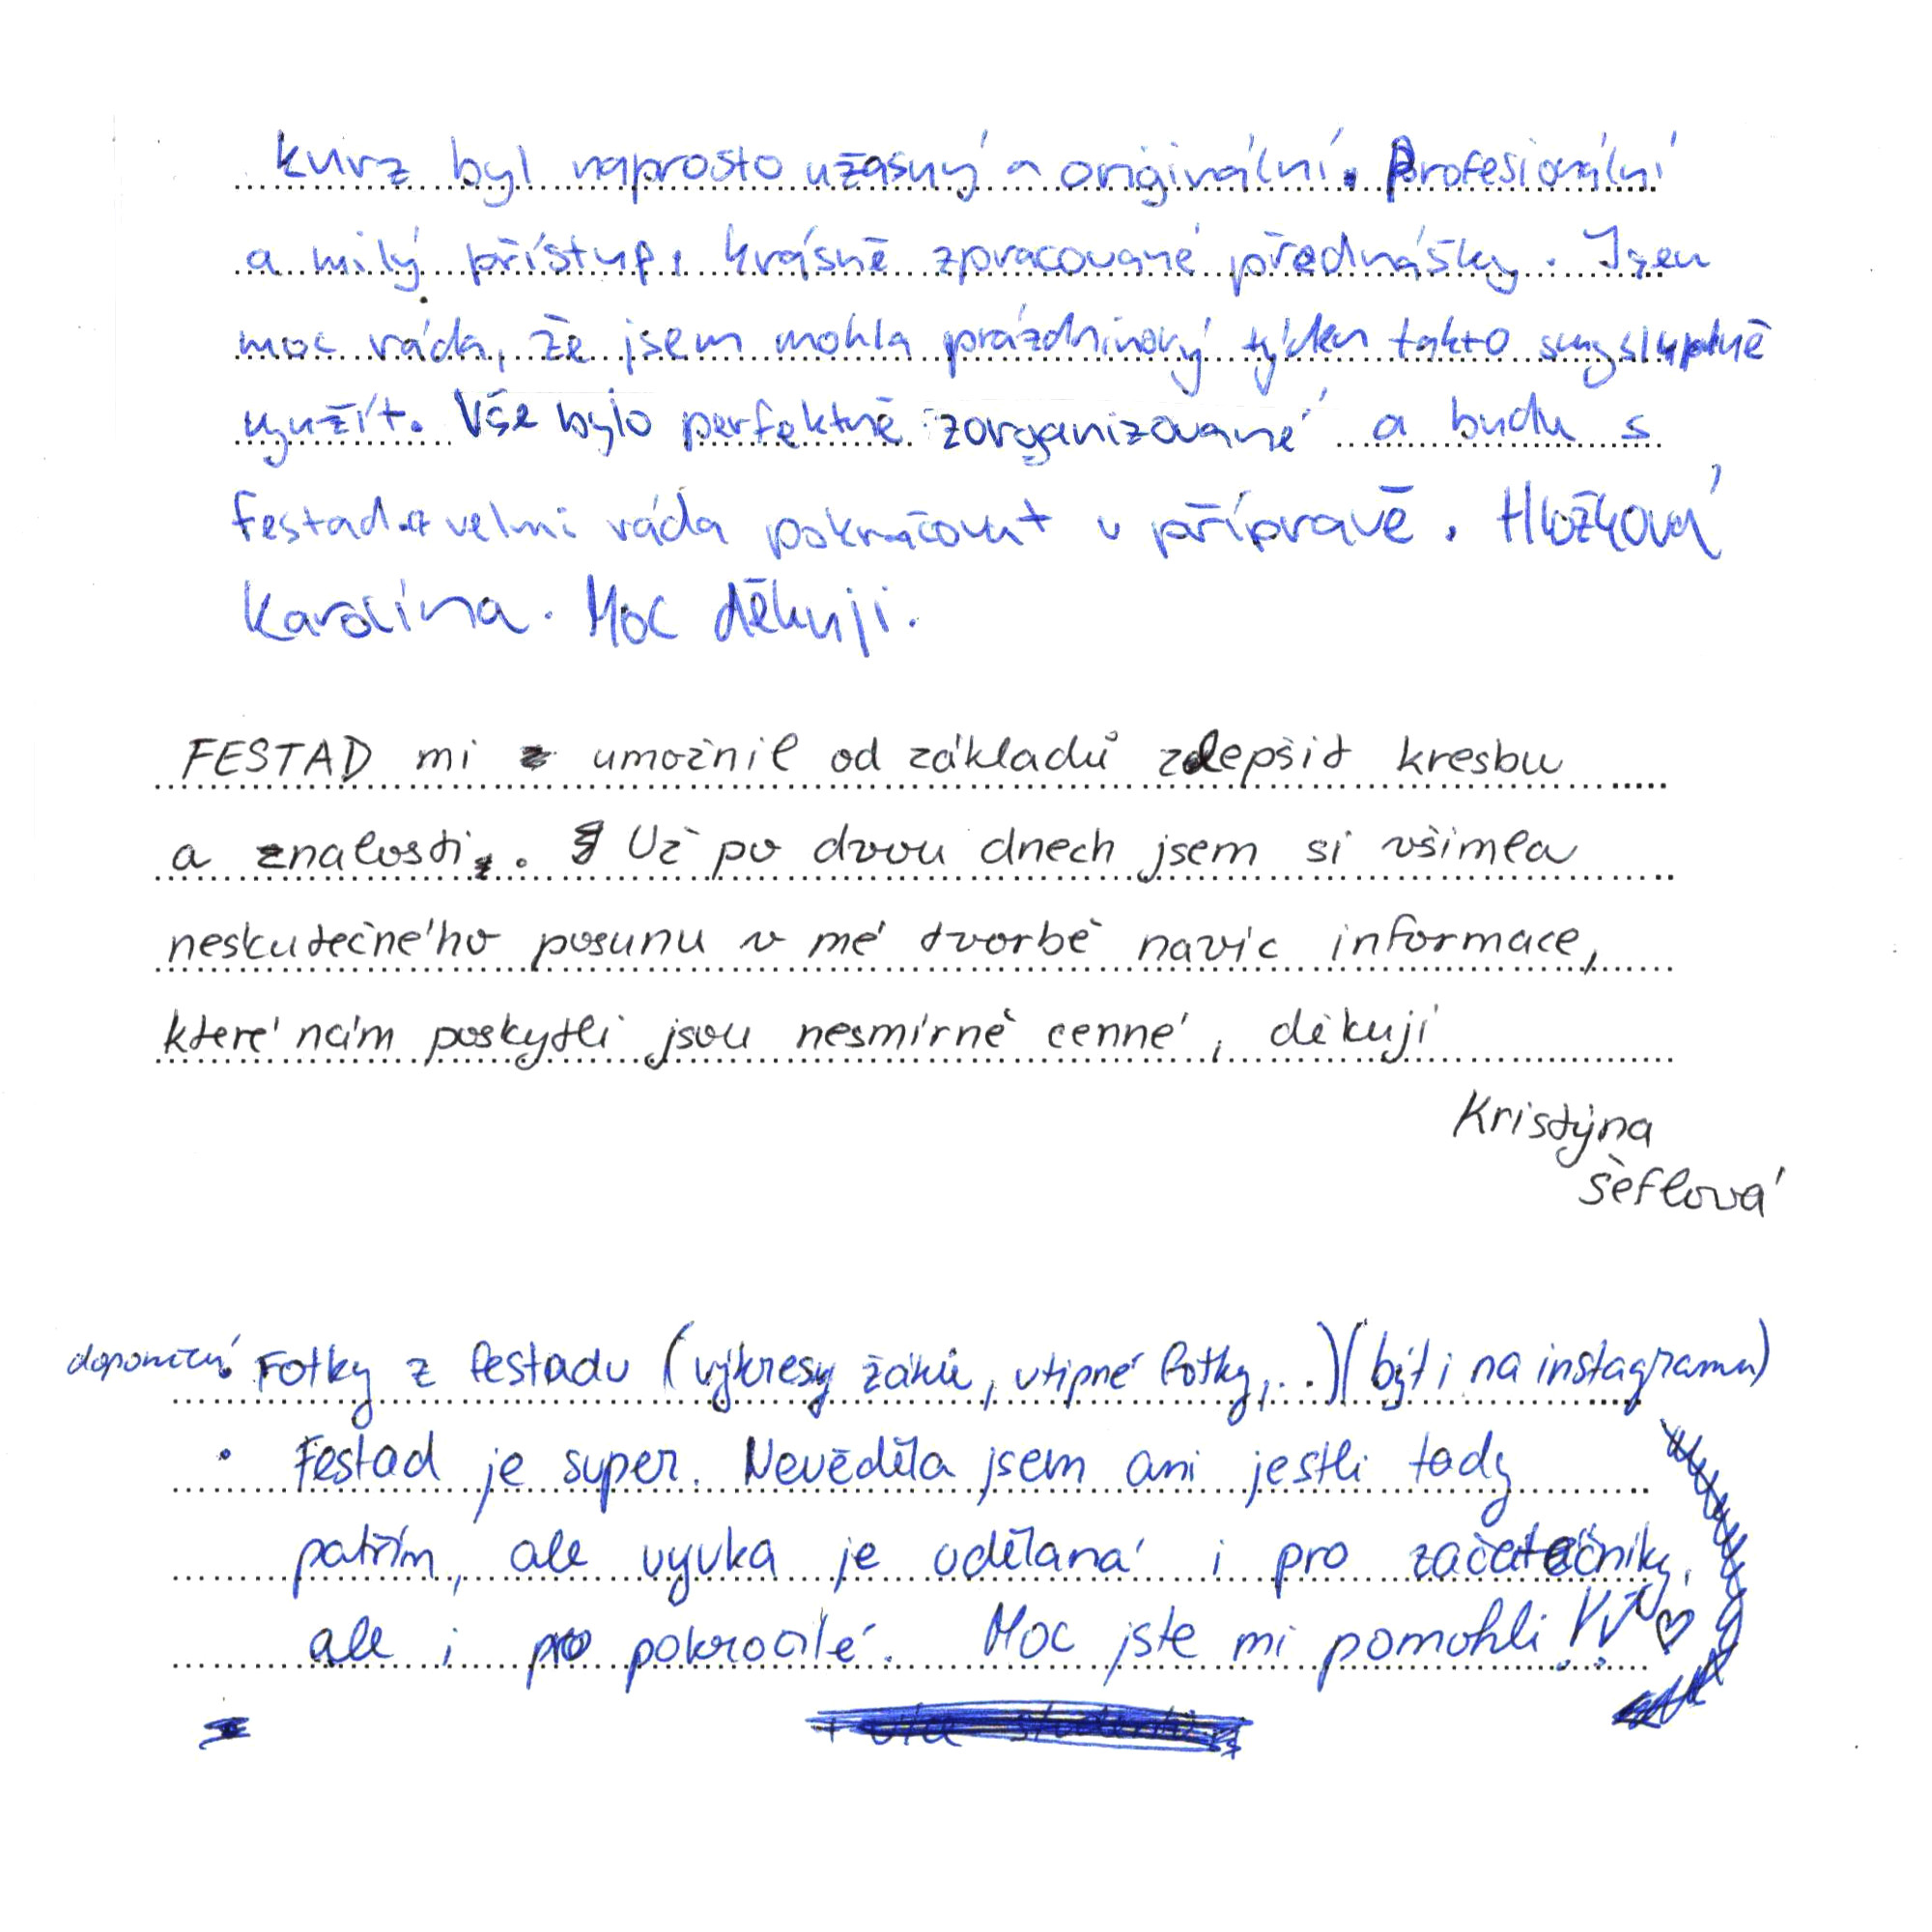 Kurz byl naprosto užasný a originální. Profesionální
a milý přístup, krásně zpracované přednášky. Jsem
moc ráda, že jsem mohla prázdninový týden takto smysluplně
využít. Vše bylo perfektně zorganizované a budu s
Festad.. velmi ráda pokračovat v přípravě.
Karolína. Moc děkuji.
FESTAD mi umožnil od základů zlepšit kresbu
a znalosti. Už po dvou dnech jsem si všimla
neskutečného posunu v mé tvorbě navíc informace,
které nám poskytli jsou nesmírně cenné, děkuji
Kristýna
Šeflová
Fotky z festadu (výkresy žáků, vtipné fotky,..)(být i na instagramu)
• Festad je super. Nevěděla jsem ani jestli tady
patřím, ale vyuka je udělaná i pro začátečníky,
ale i pro pokročilé. Moc jste mi pomohli!! ♡